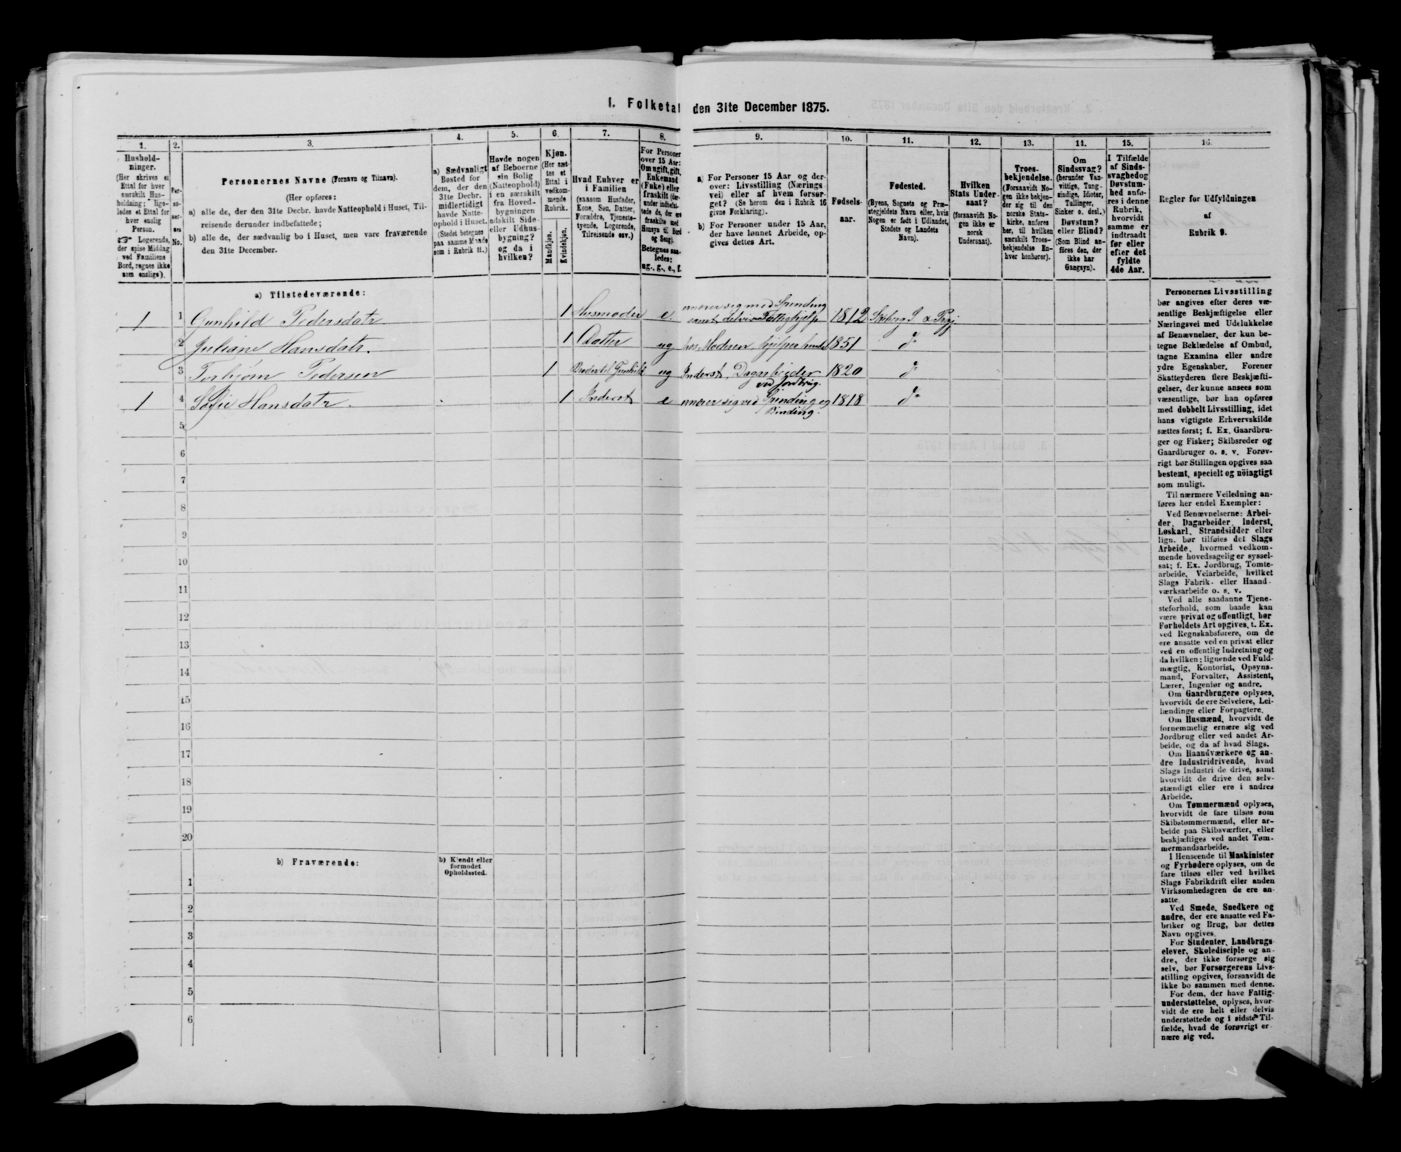 I. Folketal den 31te December 1875.
1.
Husholdninger.
2.
3.
Personernes Navne (Fornavn og Tilnavn).
(Her opføres:
a) alle de, der den 31te Decbr. havde Natteophold i Huset, Tilreisende derunder indbefattede;
b) alle de, der sædvanlig bo i Huset, men vare fraværende den 31te December.
4.
a) Sædvanligt Bosted for dem, der den 31te Decbr. midlertidigt havde Natteophold i Huset.
(Stedet betegnes paa samme Maade som i Rubrik 11.)
5.
Havde nogen af Beboerne sin Bolig (Natteophold) i en særskilt fra Hovedbygningen adskilt Side- eller Udhusbygning? og da i hvilken?
6.
Kjøn.
(Her sættes et Ettal i vedkommende Rubrik.
Mandkjøn.
Kvindekjøn.
7.
Hvad Enhver er i Familien
(saasom Husfader, Kone, Søn, Datter, Forældre, Tjenestetyende, Logerende, Tilreisende osv.)
8.
9.
a) For Personer 15 Aar og derover: Livsstilling (Næringsvei) eller af hvem forsørget? (Se herom den i Rubrik 16 givne Forklaring).
b) For Personer under 15 Aar, der have lønnet Arbeide, opgives dettes Art.
10.
Fødselsaar.
11.
Fødested.
(Byens, Sognets og Præstegjeldets Navn eller, hvis Nogen er født i Udlandet, Stedets og Landets Navn).
12.
Hvilken Stats Undersaat?
(forsaavidt Nogen ikke er norsk Undersaat).
13.
Troesbekjendelse.
(Forsaavidt Nogen ikke bekjender sig til den norske Statskirke, anføres her, til hvilken særskilt Troesbekjendelse Enhver henhører).
11.
Om Sindssvag? (herunder Vanvittige, Tungsindige, Idioter, Tullinger, Sinker o. desl.)
Døvstum? eller Blind?
(Som Blind anføres den, der ikke har Gangsyn).
15.
I Tilfælde af Sindssvaghed og Døvstumhed anføres i denne Rubrik, hvorvidt samme er indtraadt før eller efter det fyldte 4de Aar.
16.
Regler for Udfyldningen
af
Rubrik 9.
a) Tilstedeværende:
1 1 Gunhild Pedersdatr 1 Husmoder e 1812
2 Juliane Hansdatr. 1 Datter ug 1851 do
3 Torbjørn Pedersen 1 ug Inderst. Dagarbeider ved Jordbrug. 1820 do
1 4 Sofie Hansdatr. 1 Inderst e 1818 do
5
6
7
8
9
10
11
12
13
14
15
16
17
18
19
20
b) Fraværende:
b) Kjendt eller formodet Opholdssted.
1
2
3
4
5
6
Personernes Livsstilling
bør angives efter deres væsentlige Beskjæftigelse eller
Næringsvei med Udelukkelse
af Benævnelser, der kun betegne Beklædelse af Ombud,
tagne Examina eller andre
ydre Egenskaber. Forener
Skatteyderen flere Beskjæftigelser, der kunne ansees som
væsentlige, bør han opføres
med dobbelt Livsstilling, idet
hans vigtigste Erhvervskilde
sættes først; f. Ex. Gaardbruger og Fisker; Skibsreder og
Gaardbruger o. s. v. Forøvrigt bør Stillingen opgives saa
bestemt, specielt og nöiagtigt
som muligt.
Til nærmere Veiledning anføres her endel Exempler:
Ved Benævnelserne: Arbeider, Dagarbeider, Inderst,
Løskarl, Strandsidder eller
lign. bør tilføies det Slags
Arbeide, hvormed vedkommende hovedsagelig er sysselsat; f. Ex. Jordbrug, Tomtearbeide, Veiarbeide, hvilket
Slags Fabrik- eller Haandværksarbeide o. s. v.
Ved alle saadanne Tjenesteforhold, som baade kan
være privat og offentligt, bør
Forholdets Art opgives, t. Ex.
ved Regnskabsførere, om de
ere ansatte ved en privat eller
ved en offentlig Indretning og
da hvilken; lignende ved Fuldmægtig, Kontorist, Opsynsmand, Forvalter, Assistent,
Lærer, Ingeniør og andre.
Om Gaardbrugere oplyses,
hvorvidt de ere Selveiere, Leilændinge eller Forpagtere.
Om Husmænd, hvorvidt de
fornemmelig ernære sig ved
Jordbrug eller ved andet Arbeide, og da af hvad Slags.
Om Haandværkere og andre Industridrivende, hvad
Slags Industri de drive, samt
hvorvidt de drive den selvstændigt eller ere i andres
Arbeide.
Om Tømmermænd oplyses,
hvorvidt de fare tilsøs som
Skibstømmermænd, eller arbeide paa Skibsværfter, eller
beskjæftiges ved andet Tømmermandsarbeide.
I Henseende til Maskinister
og Fyrbødere oplyses, om de
fare tilsøs eller ved hvilket
Slags Fabrikdrift eller anden
Virksomhedsgren de ere ansatte.
Ved Smede, Snedkere og
andre, der ere ansatte ved Fabriker og Brug, bør dettes
Navn opgives.
For Studenter, Landbrugselever, Skoledisciple og andre, der ikke forsørge sig
selv, bør Forsørgerens Livsstilling opgives, forsaavidt de
ikke bo sammen med denne.
For dem, der have Fattigunderstøttelse, oplyses, hvorvidt de ere helt eller delvis
understøttede og i sidste Tilfælde, hvad de forøvrigt ernære sig ved.